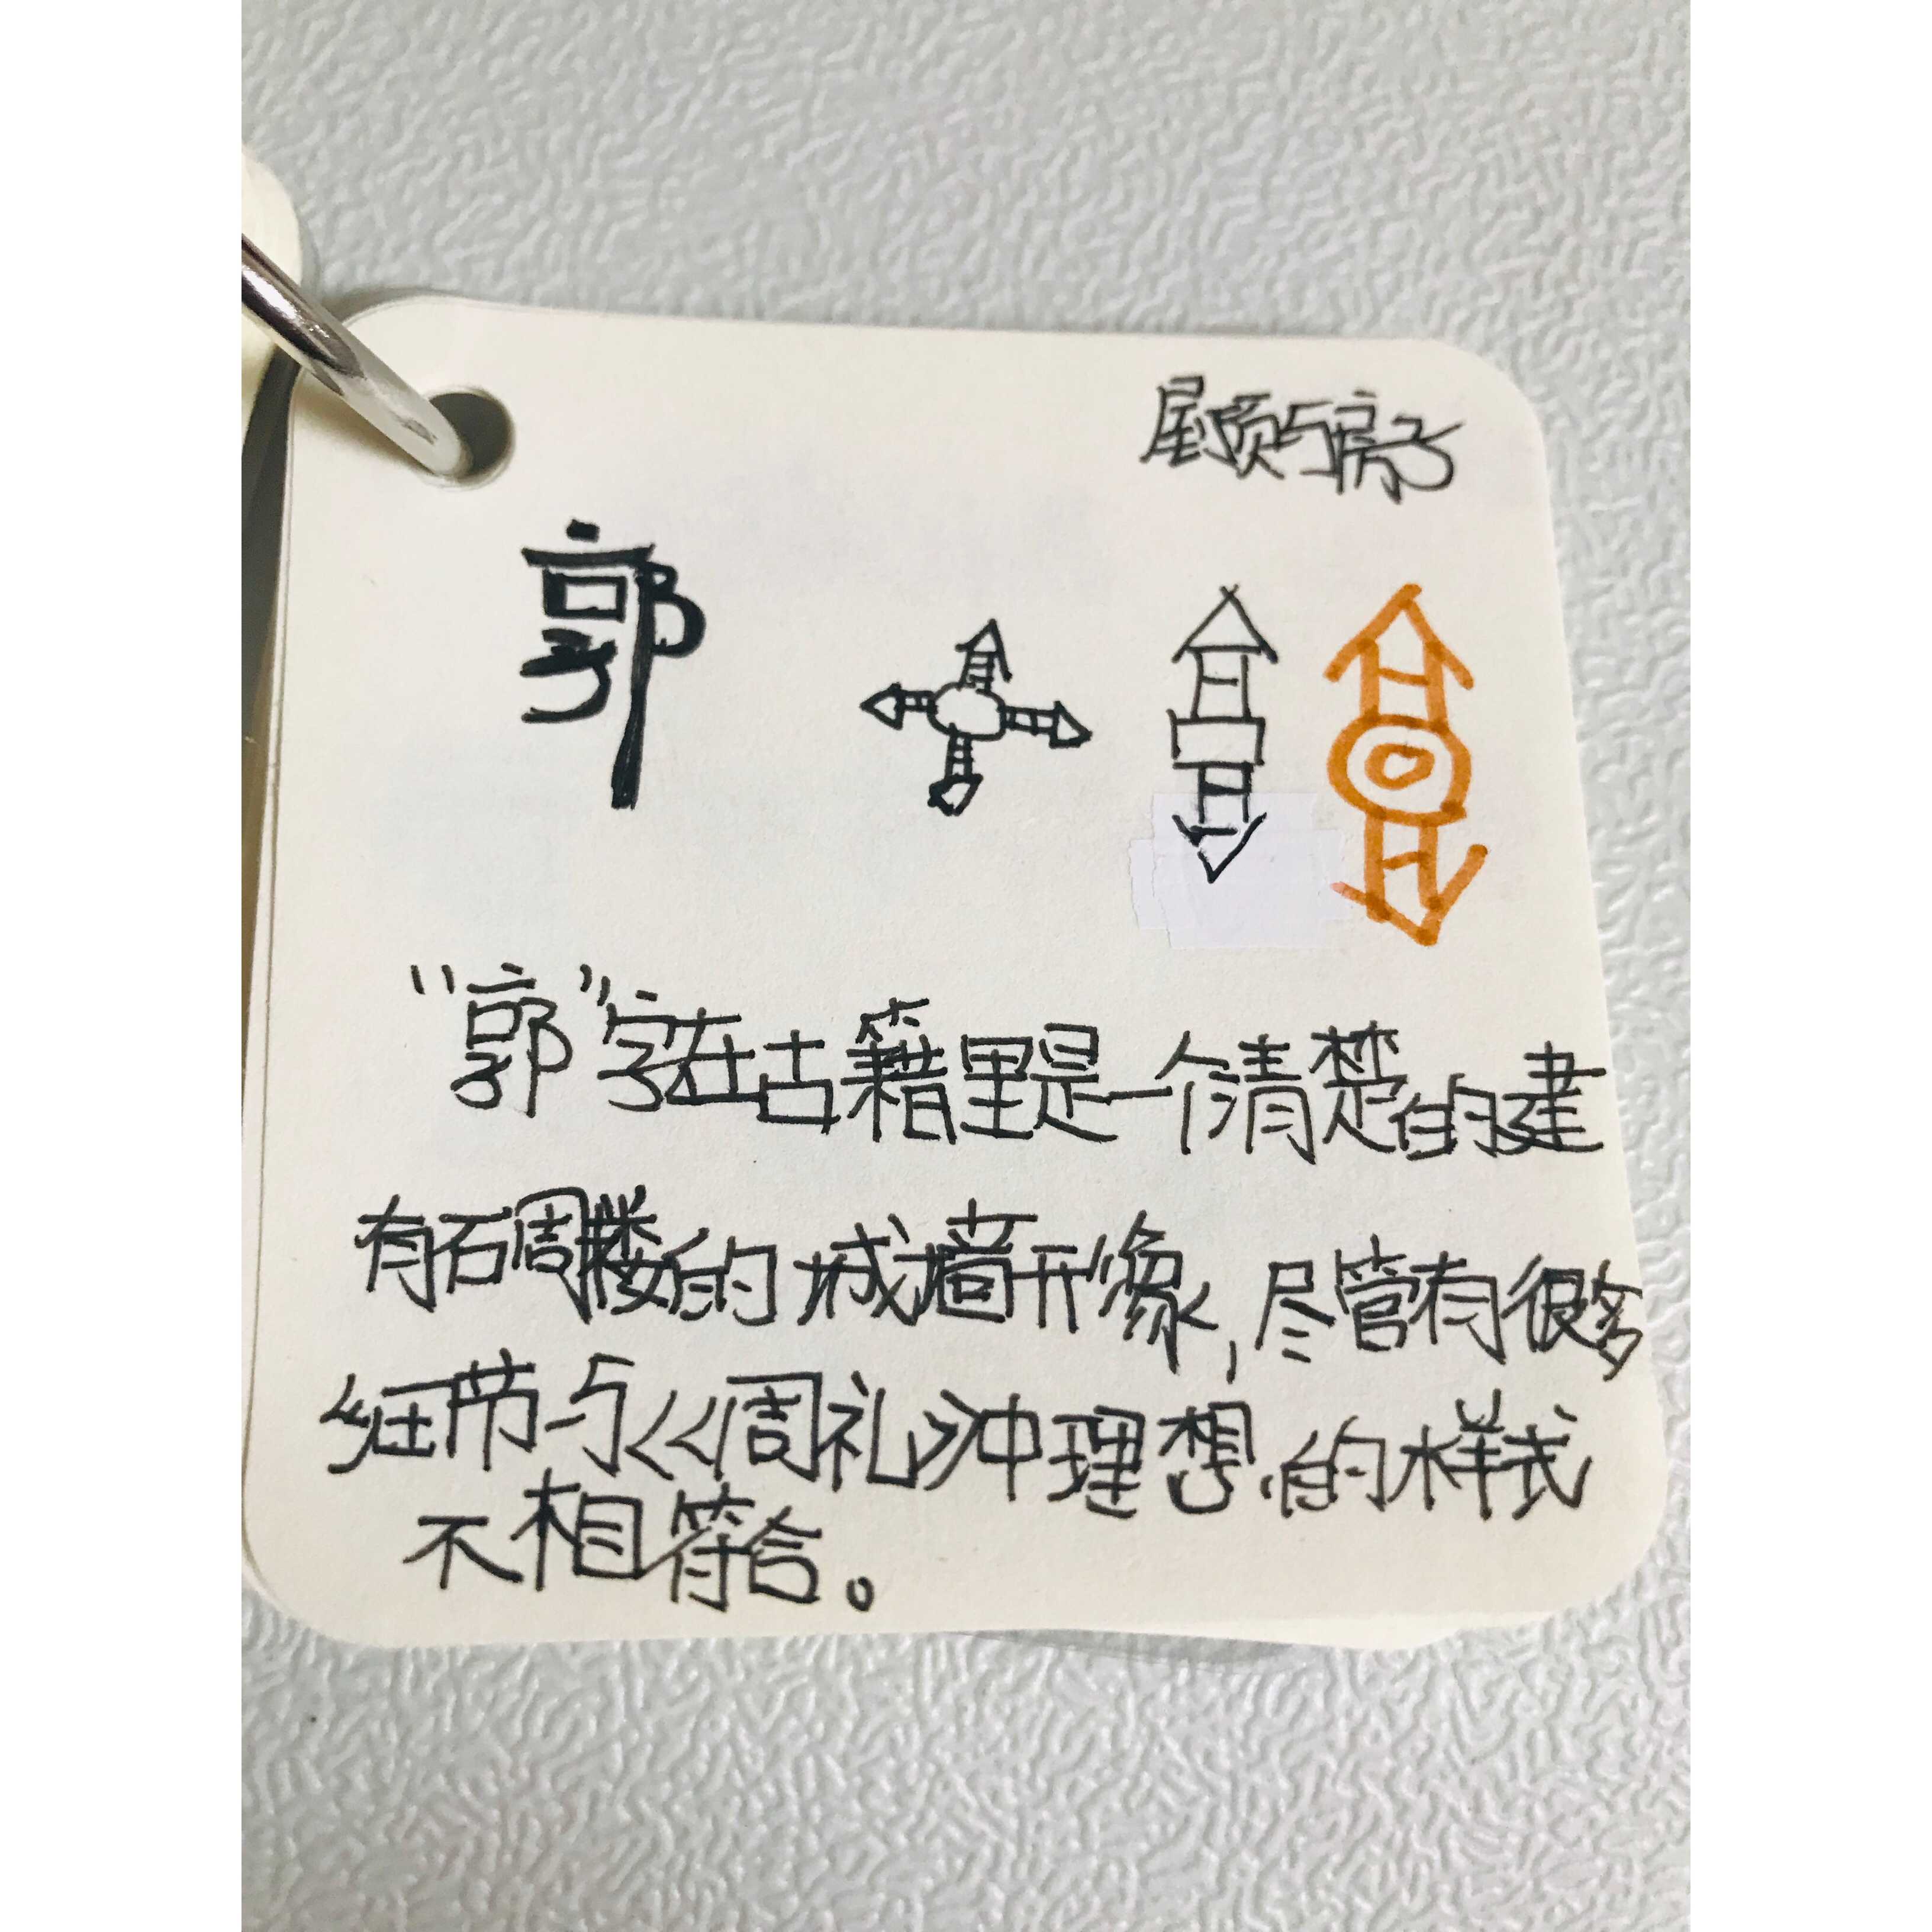 屋顶与房子
郭
“郭”字在古籍里是一个清楚的建
有石周楼的城墙形像,尽管有很多
细节与《周礼》冲理想的样式
不相符合。